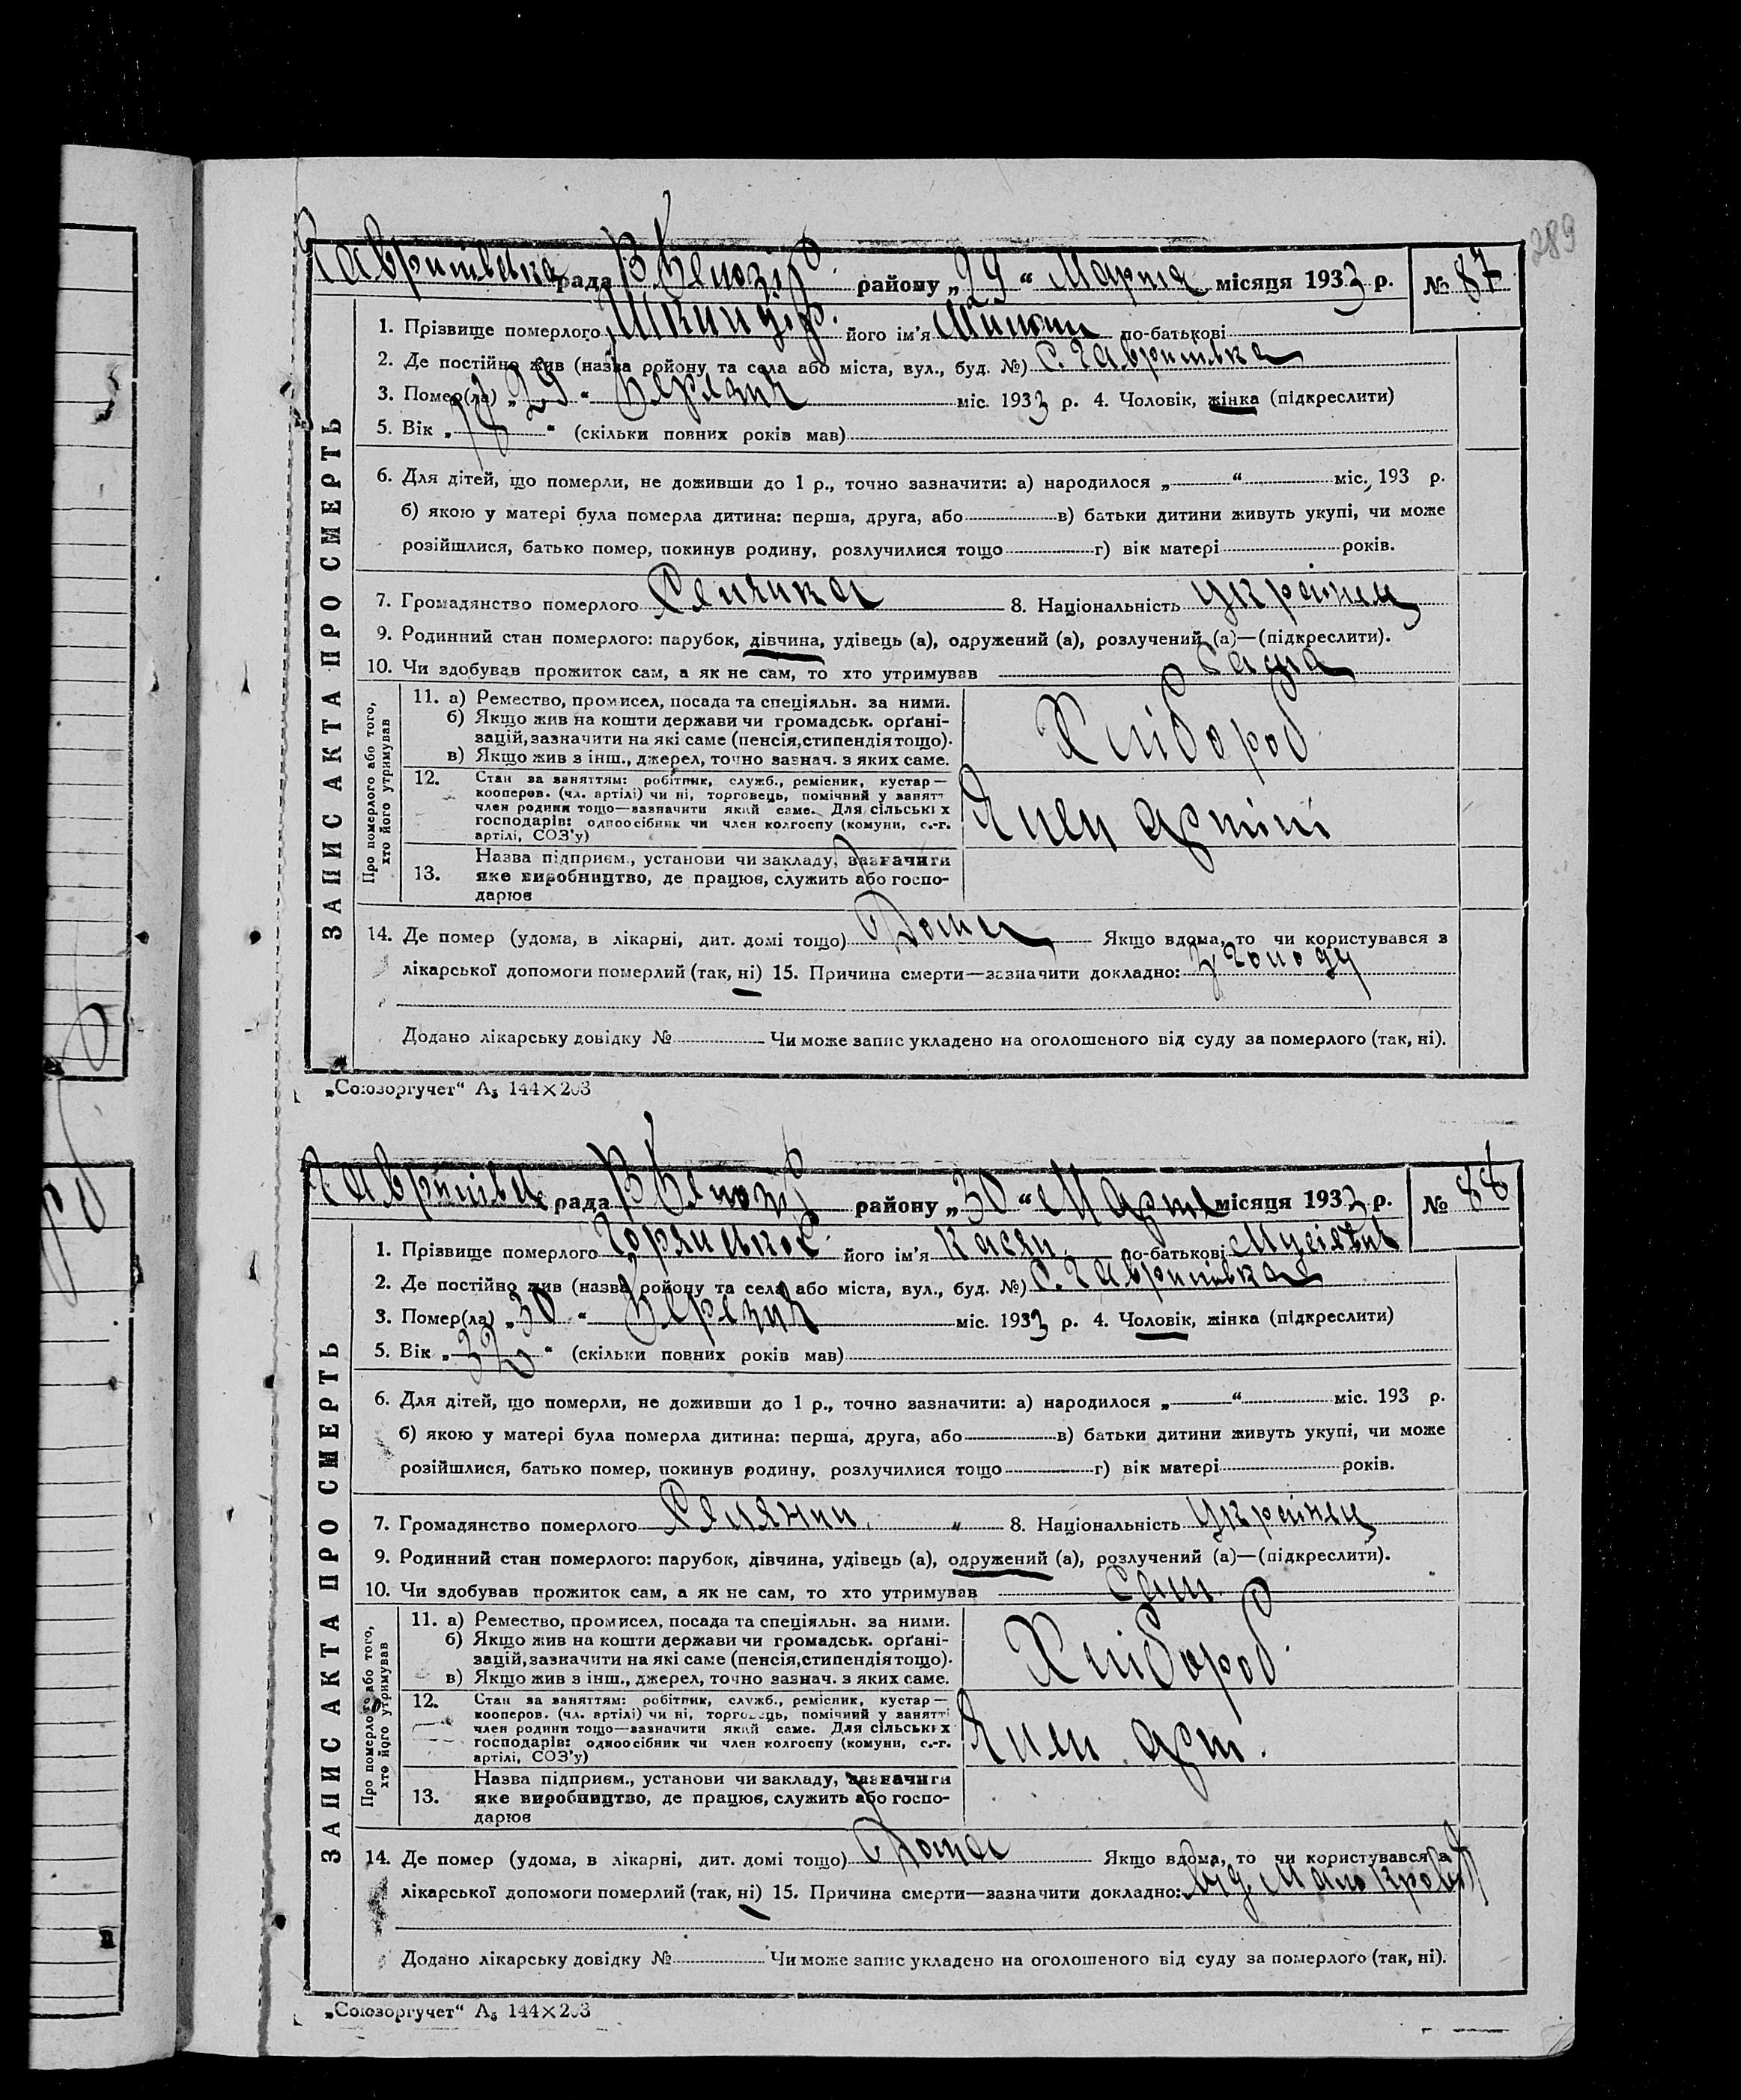 289
Гаврилівська рада В районy „29“ Марта місяця 1933 р. № 87
1. Прізвище померлого його ім'я по-батькові
2. Де постійно жив (назва ройону та села або міста, вул., буд. №) С. Гаврилівка
3. Помер(ла) „29“ Березня міс. 1933 р. 4. Чоловік, жінка (підкреслити)
5. Вік „18“ (скільки повних років мав)
6. Для дітей, що померли, не доживши до 1 р., точно зазначити: а) народилося „ “ міс. 193 р.
б) якою у матері була померла дитина: перша, друга, або в) батьки дитини живуть укупі, чи може
розійшлися, батько помер, покинув родину, розлучилися тощо г) вік матері років.
7. Громадянство померлого Селянка 8. Національність Українец
9. Родинний стан померлого: парубок, дівчина, удівець (а), одружений (а), розлучений (а)—(підкреслити).
10. Чи здобував прожиток сам, а як не сам, то хто утримував Сама
ЗАПИС АКТА ПРО СМЕРТЬ
Про померлого або того,
хто його утримував
11. а) Ремество, промисел, посада та спеціяльн. за ними.
б) Якщо жив на кошти держави чи громадськ. орґані-
зацій, зазначити на які саме (пенсія, стипендія тощо).
в) Якщо жив з інш., джерел, точно зазнач. з яких саме.
Хлібороб
12. Стан за заняттям: робітник, служб., ремісник, кустар—
кооперов. (чл. артілі) чи ні, торговець, помічний у занятт
член родини тощо—зазначити який саме. Для сільських
господарів: одноосібник чи член колгоспу (комуни, с.-г.
артілі, СОЗ'у)
Член артілі
13. Назва підприєм., установи чи закладу, зазначити
яке виробництво, де працює, служить або госпо-
дарює
14. Де помер (удома, в лікарні, дит. домі тощо) Дома Якщо вдома, то чи користувався з
лікарської допомоги померлий (так, ні) 15. Причина смерти—зазначити докладно: З голоду
Додано лікарську довідку № Чи може запис укладено на оголошеного від суду за померлого (так, ні).
„Союзоргучет“ А5 144×203
рада В районy „30“ Марта місяця 1933 р. № 88
1. Прізвище померлого його ім'я Касян по-батькові Мусієвич
2. Де постійно жив (назва ройону та села або міста, вул., буд. №) С. Гаврилівка
3. Помер(ла) „30“ Березня міс. 1933 р. 4. Чоловік, жінка (підкреслити)
5. Вік „32“ (скільки повних років мав)
6. Для дітей, що померли, не доживши до 1 р., точно зазначити: а) народилося „ “ міс. 193 р.
б) якою у матері була померла дитина: перша, друга, або в) батьки дитини живуть укупі, чи може
розійшлися, батько помер, покинув родину, розлучилися тощо г) вік матері років.
7. Громадянство померлого Селянин 8. Національність Українец
9. Родинний стан померлого: парубок, дівчина, удівець (а), одружений (а), розлучений (а)—(підкреслити).
10. Чи здобував прожиток сам, а як не сам, то хто утримував Сам
ЗАПИС АКТА ПРО СМЕРТЬ
Про померлого або того,
хто його утримував
11. а) Ремество, промисел, посада та спеціяльн. за ними.
б) Якщо жив на кошти держави чи громадськ. орґані-
зацій, зазначити на які саме (пенсія, стипендія тощо).
в) Якщо жив з інш., джерел, точно зазнач. з яких саме.
Хлібороб
12. Стан за заняттям: робітник, служб., ремісник, кустар—
кооперов. (чл. артілі) чи ні, торговець, помічний у занятті
член родини тощо—зазначити який саме. Для сільських
господарів: одноосібник чи член колгоспу (комуни, с.-г.
артілі, СОЗ'у)
Член арт.
13. Назва підприєм., установи чи закладу, зазначити
яке виробництво, де працює, служить або госпо-
дарює
14. Де помер (удома, в лікарні, дит. домі тощо) Дома Якщо вдома, то чи користувався з
лікарської допомоги померлий (так, ні) 15. Причина смерти—зазначити докладно: від Мало кровія
Додано лікарську довідку № Чи може запис укладено на оголошеного від суду за померлого (так, ні).
„Союзоргучет“ А5 144×203